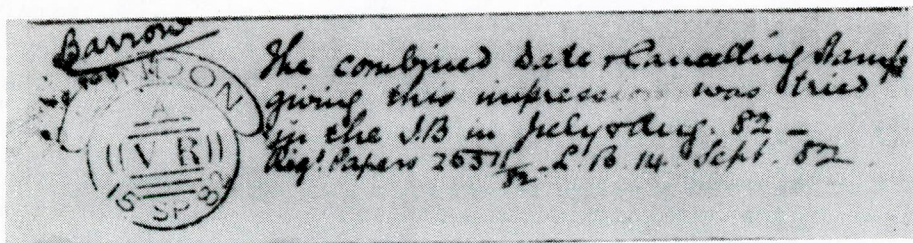 Barrow
LONDON
A
VR
15 SP 82
The combined Date & Cancelling Stamp
giving this impression was tried
in the I.B in July & Aug. 82 –
Regd. Papers L.B. 14 Sept. 82